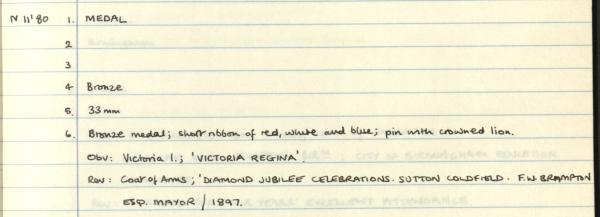 N 11'80 1. MEDAL
2
3
4 Bronze
5. 33mm
6. Bronze medal; short ribbon of red, white and blue; pin with crowned lion.
Obv: Victoria I.; 'VICTORIA REGINA'
Rev: Coat of Arms; 'DIAMOND JUBILEE CELEBRATIONS. SUTTON COLDFIELD. F.W. BRAMPTON
ESQ. MAYOR / 1897.